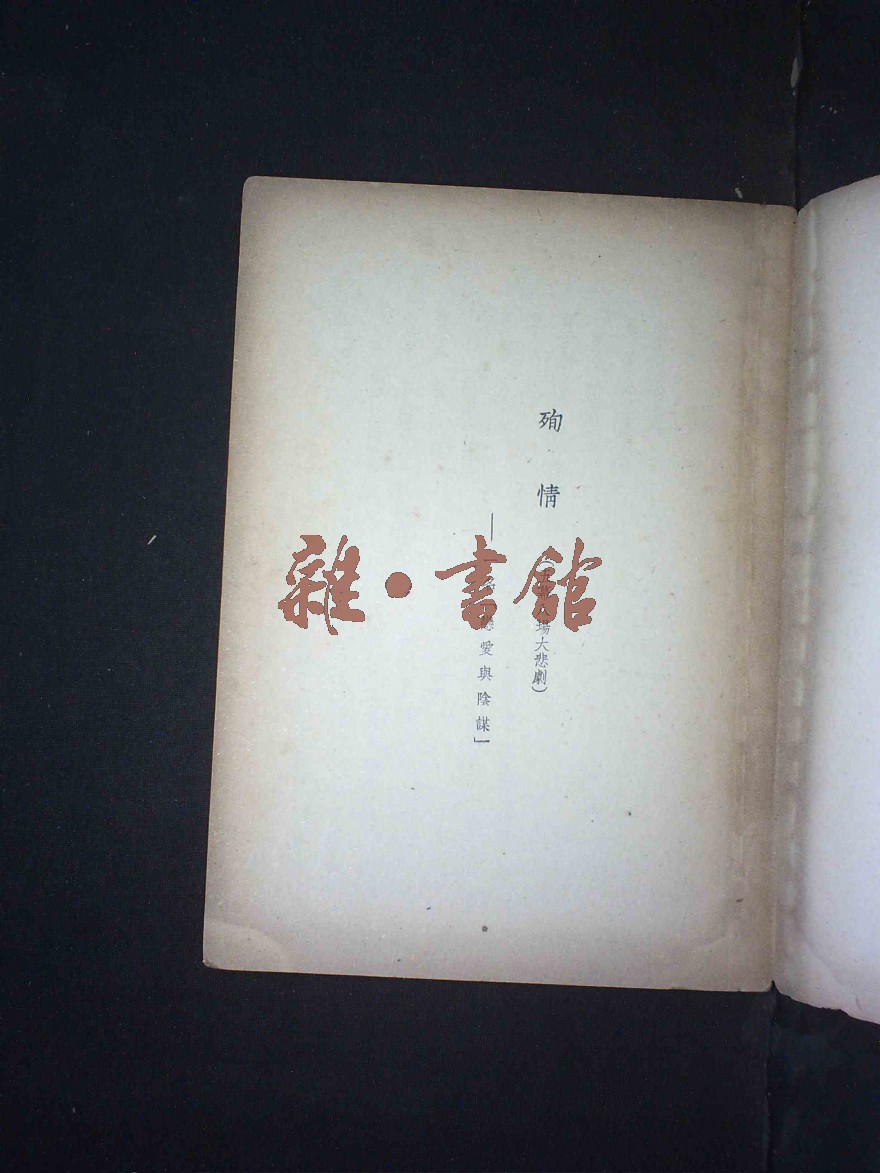 殉情
場大悲劇）
——
愛與陰謀」
雜·書館